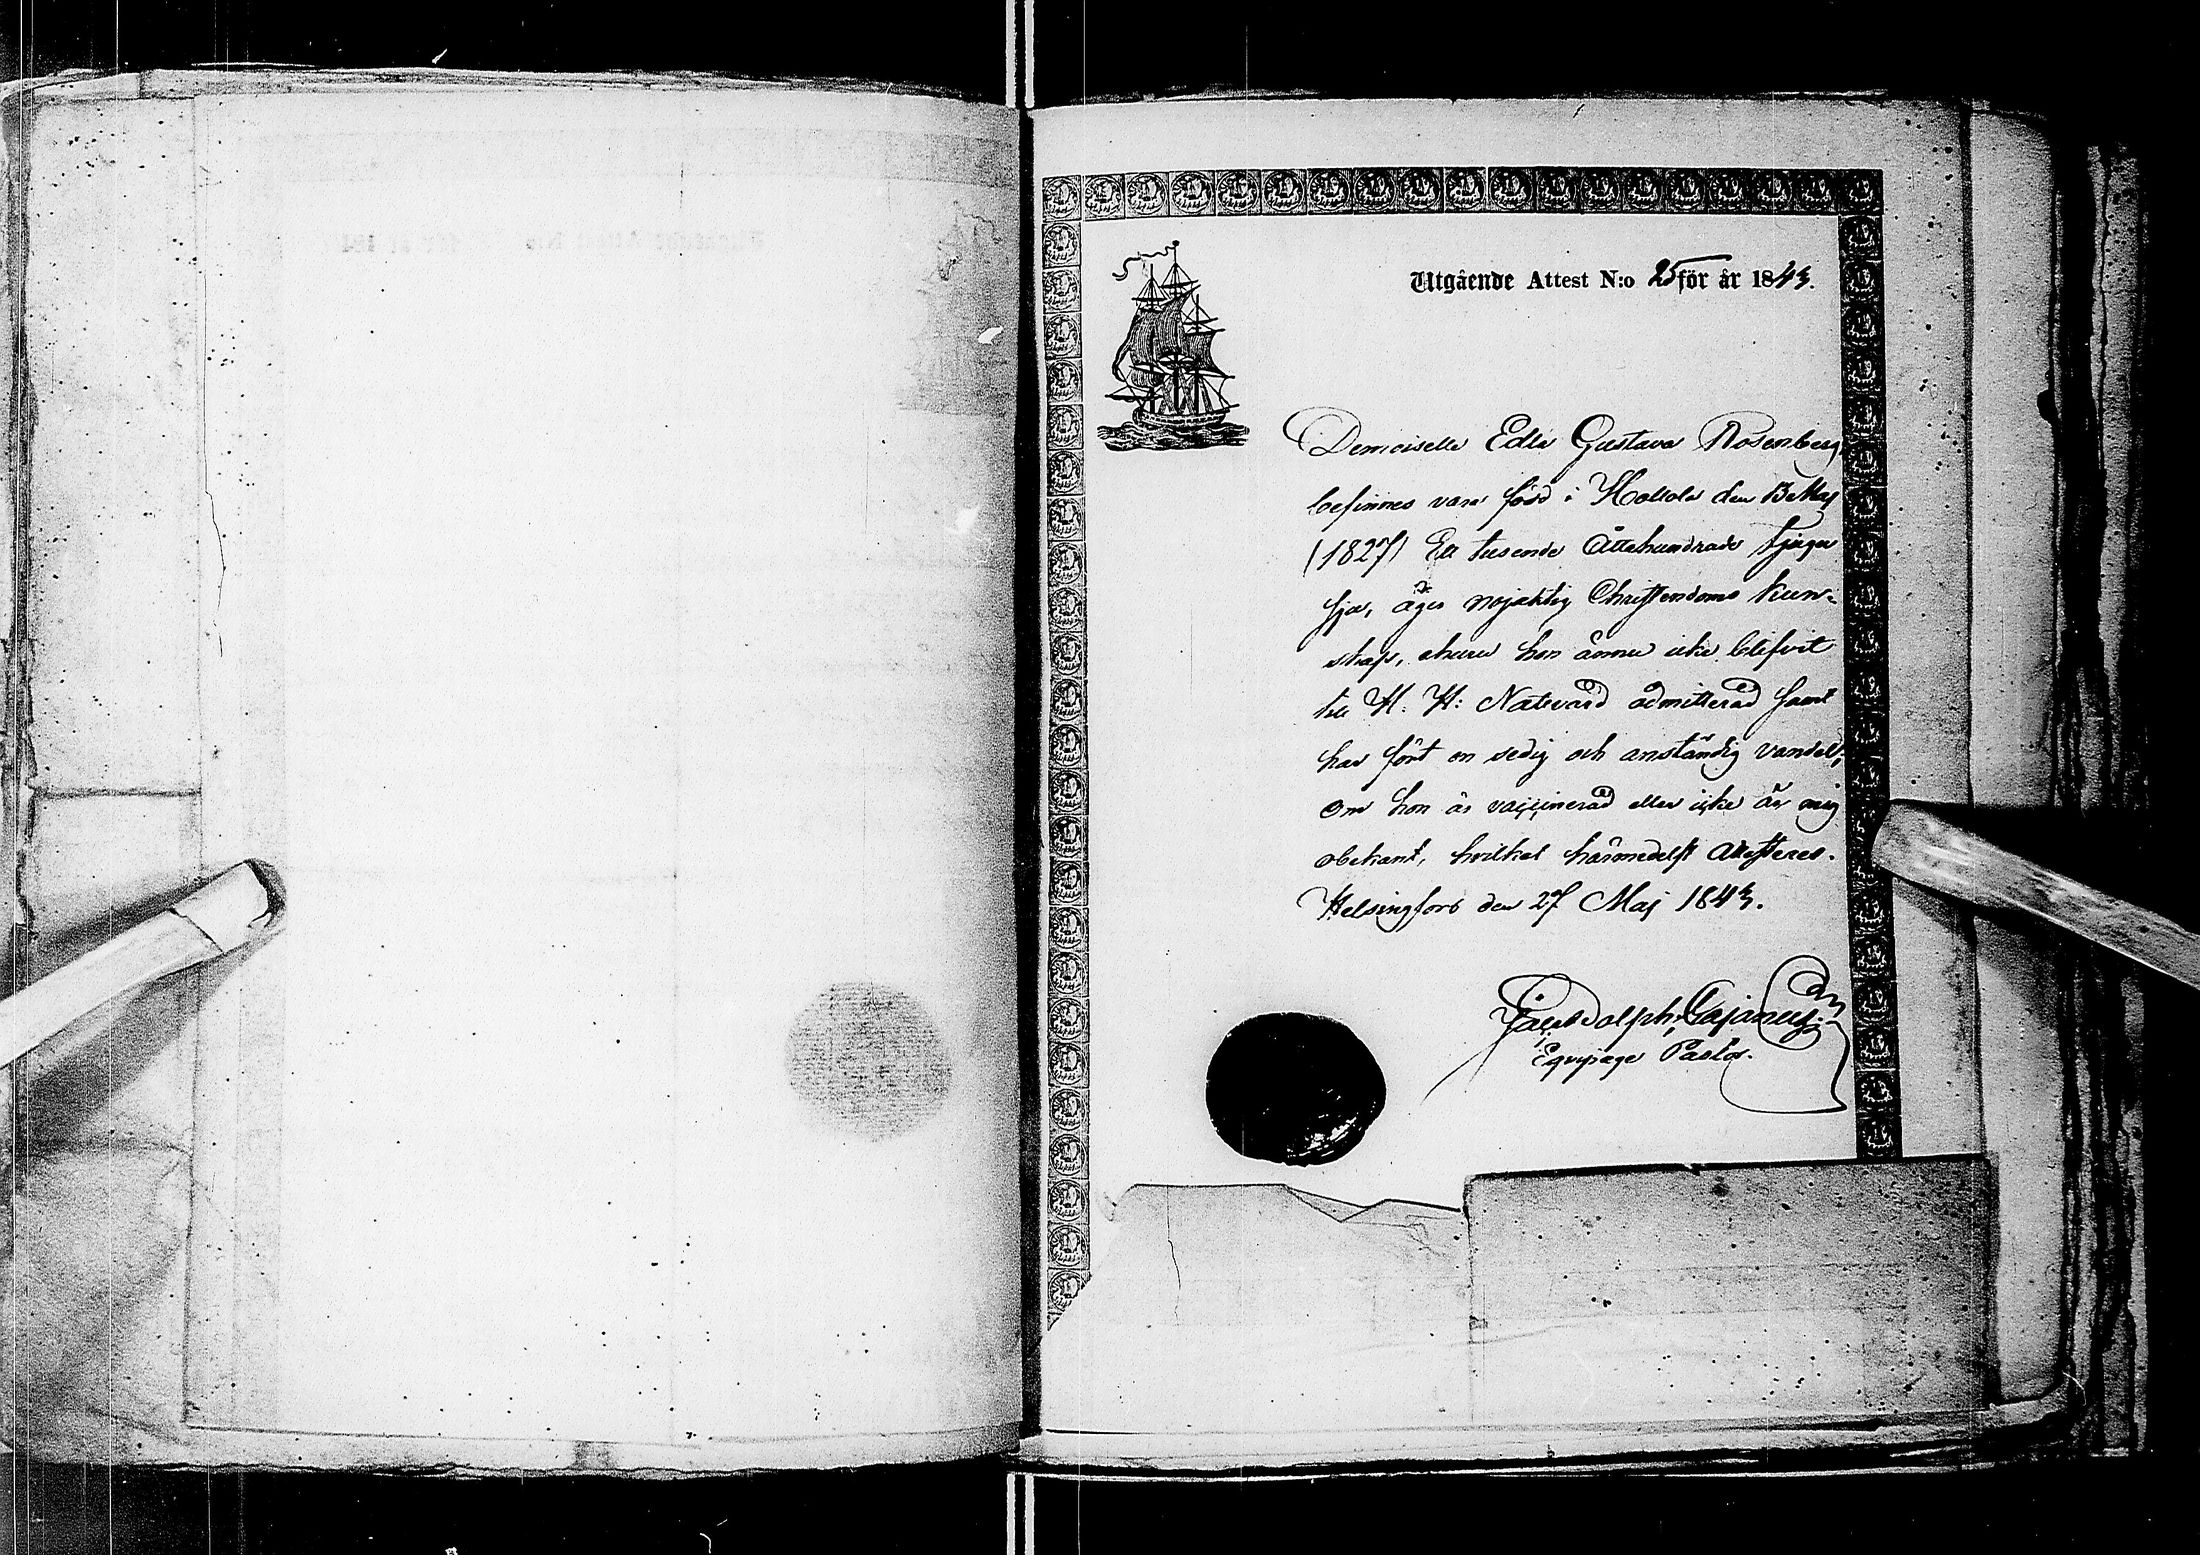 Utgående Attest N:o 25 för år 1843.
Demoiselle Edla Gustava Rosenberg,
befinnes vara född i Hollola den 13 Maj
(1827) Ett tusende Åttahundrade tjugu
sju, äger nöjaktig Christendoms kun-
skap, ehuru hon ännu icke blifvit
till H. H: Nattvard admitterad samt
har fört en sedig och anständig vandel,
Om hon är vaccinerad eller icke är mig
obekant, hvilket härmedelst attesteres.
Helsingfors den 27 Maj 1843.
Cajanus.
Equipage Pastor.